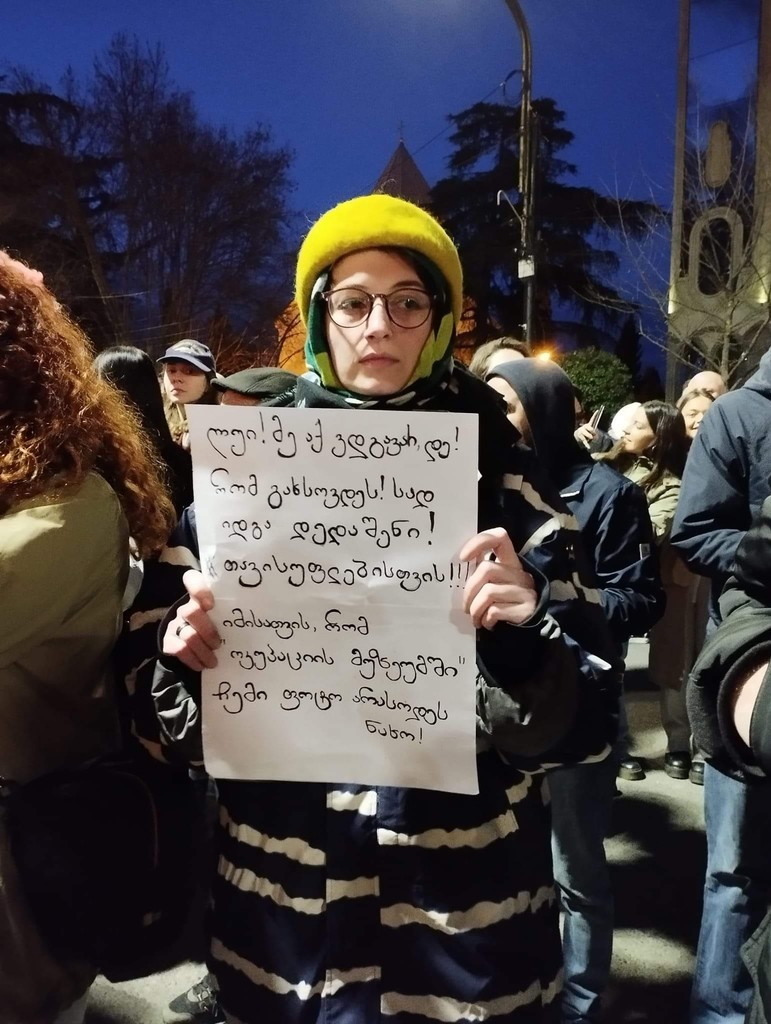 ლუი! მე აქ ვდგავარ, დე!
რომ გახსოვდეს! სად
იდგა დედაშენი!
# თავისუფლებისთვის!!!
იმისათვის, რომ
"ოკუპაციის მუზეუმში"
ჩემი ფოტო არასოდეს
ნახო!